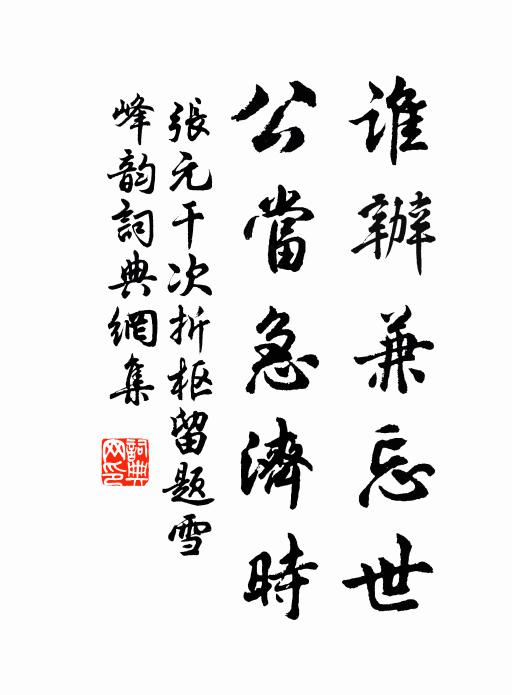 誰辦兼忘世
公當急濟時
張元干次折枢留题雪
峰韵詞典網集
詞典网印